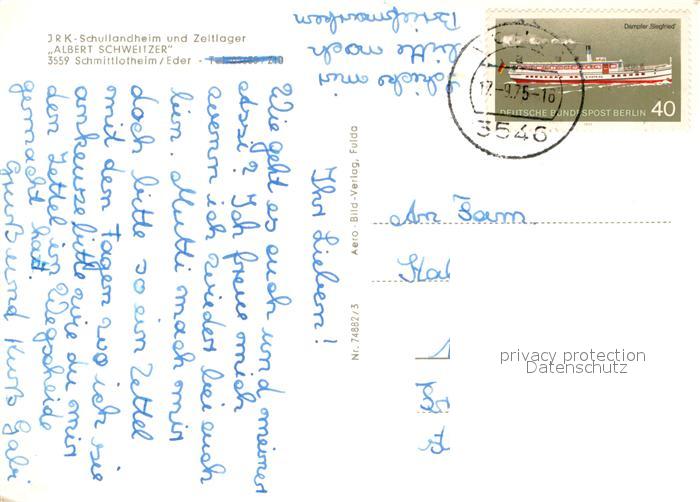 JRK-Schullandheim und Zeltlager
„ALBERT SCHWEITZER“
3559 Schmittlotheim/Eder -
Ihr Lieben!
Wie geht es euch und meiner
Assi? Ich freue mich
wenn ich wieder bei euch
bin. Mutti mach mir
doch bitte so ein Zettel
mit den Tagen wo ich sie
ankeuze bitte wie du mir
den Zettel im Wegscheide
gemacht hatt.
Gruß und Kuß Gabi
schicke mir
bitte noch
Briefmarken
Aero-Bild-Verlag, Fulda
Nr. 74882/3
Dampfer „Siegfried“
DEUTSCHE BUNDESPOST BERLIN 40
17.-9.75-18
3546
An Fam.
privacy protection
Datenschutz